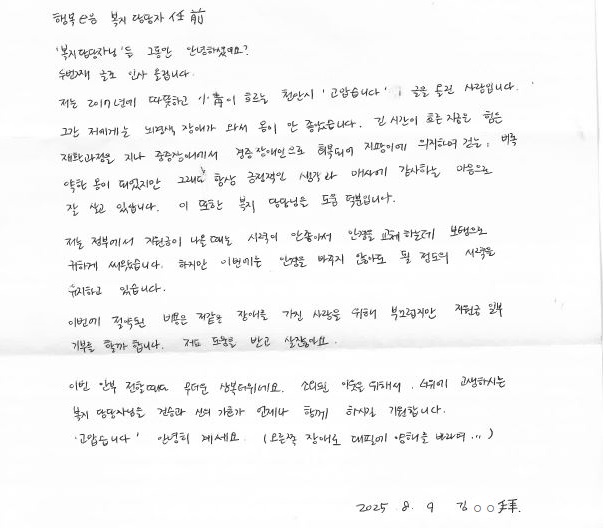 행복e음 복지 담당자 任 前
'복지담당자님'들 그동안 안녕하셨어요?
두번째 글로 인사 올립니다.
저는 2017년에 따뜻하고 小靑이 흐르는 천안시 '고맙습니다' 글을 올린 사람입니다.
그간 저에게는 뇌경색 장애가 와서 몸이 안 좋았습니다. 긴 시간이 흐른 지금은 힘든
재활과정을 지나 중증장애에서 경증장애인으로 회복되어 지팡이에 의지하여 걷는, 비록
약한 몸이 되었지만 그래도 항상 긍정적인 생각과 매사에 감사하는 마음으로
잘 살고 있습니다. 이 또한 복지 담당님을 도움 덕분입니다.
저는 정부에서 지원금이 나올 때는 시력이 안좋아서 안경을 교체 하는데 보탬으로
귀하게 써왔습니다. 하지만 이번에는 안경을 바꾸지 않아도 될 정도의 시력을
유지하고 있습니다.
이번에 절약된 비용은 저같은 장애를 가진 사람을 위해 부끄럽지만 지원금 일부
기부를 할까 합니다. 저도 도움을 받고 살잖아요.
이번 안부 전할때도 무더운 삼복더위네요. 소외된 이웃을 위해서, 너위에 고생하시는
복지 담당자님은 건승과 신의 가호가 언제나 함께 하시길 기원합니다.
'고맙습니다' 안녕히 계세요. (오른쪽 장애로 대필에 양해를 바라며...)
2025 8. 9 김○○拜.